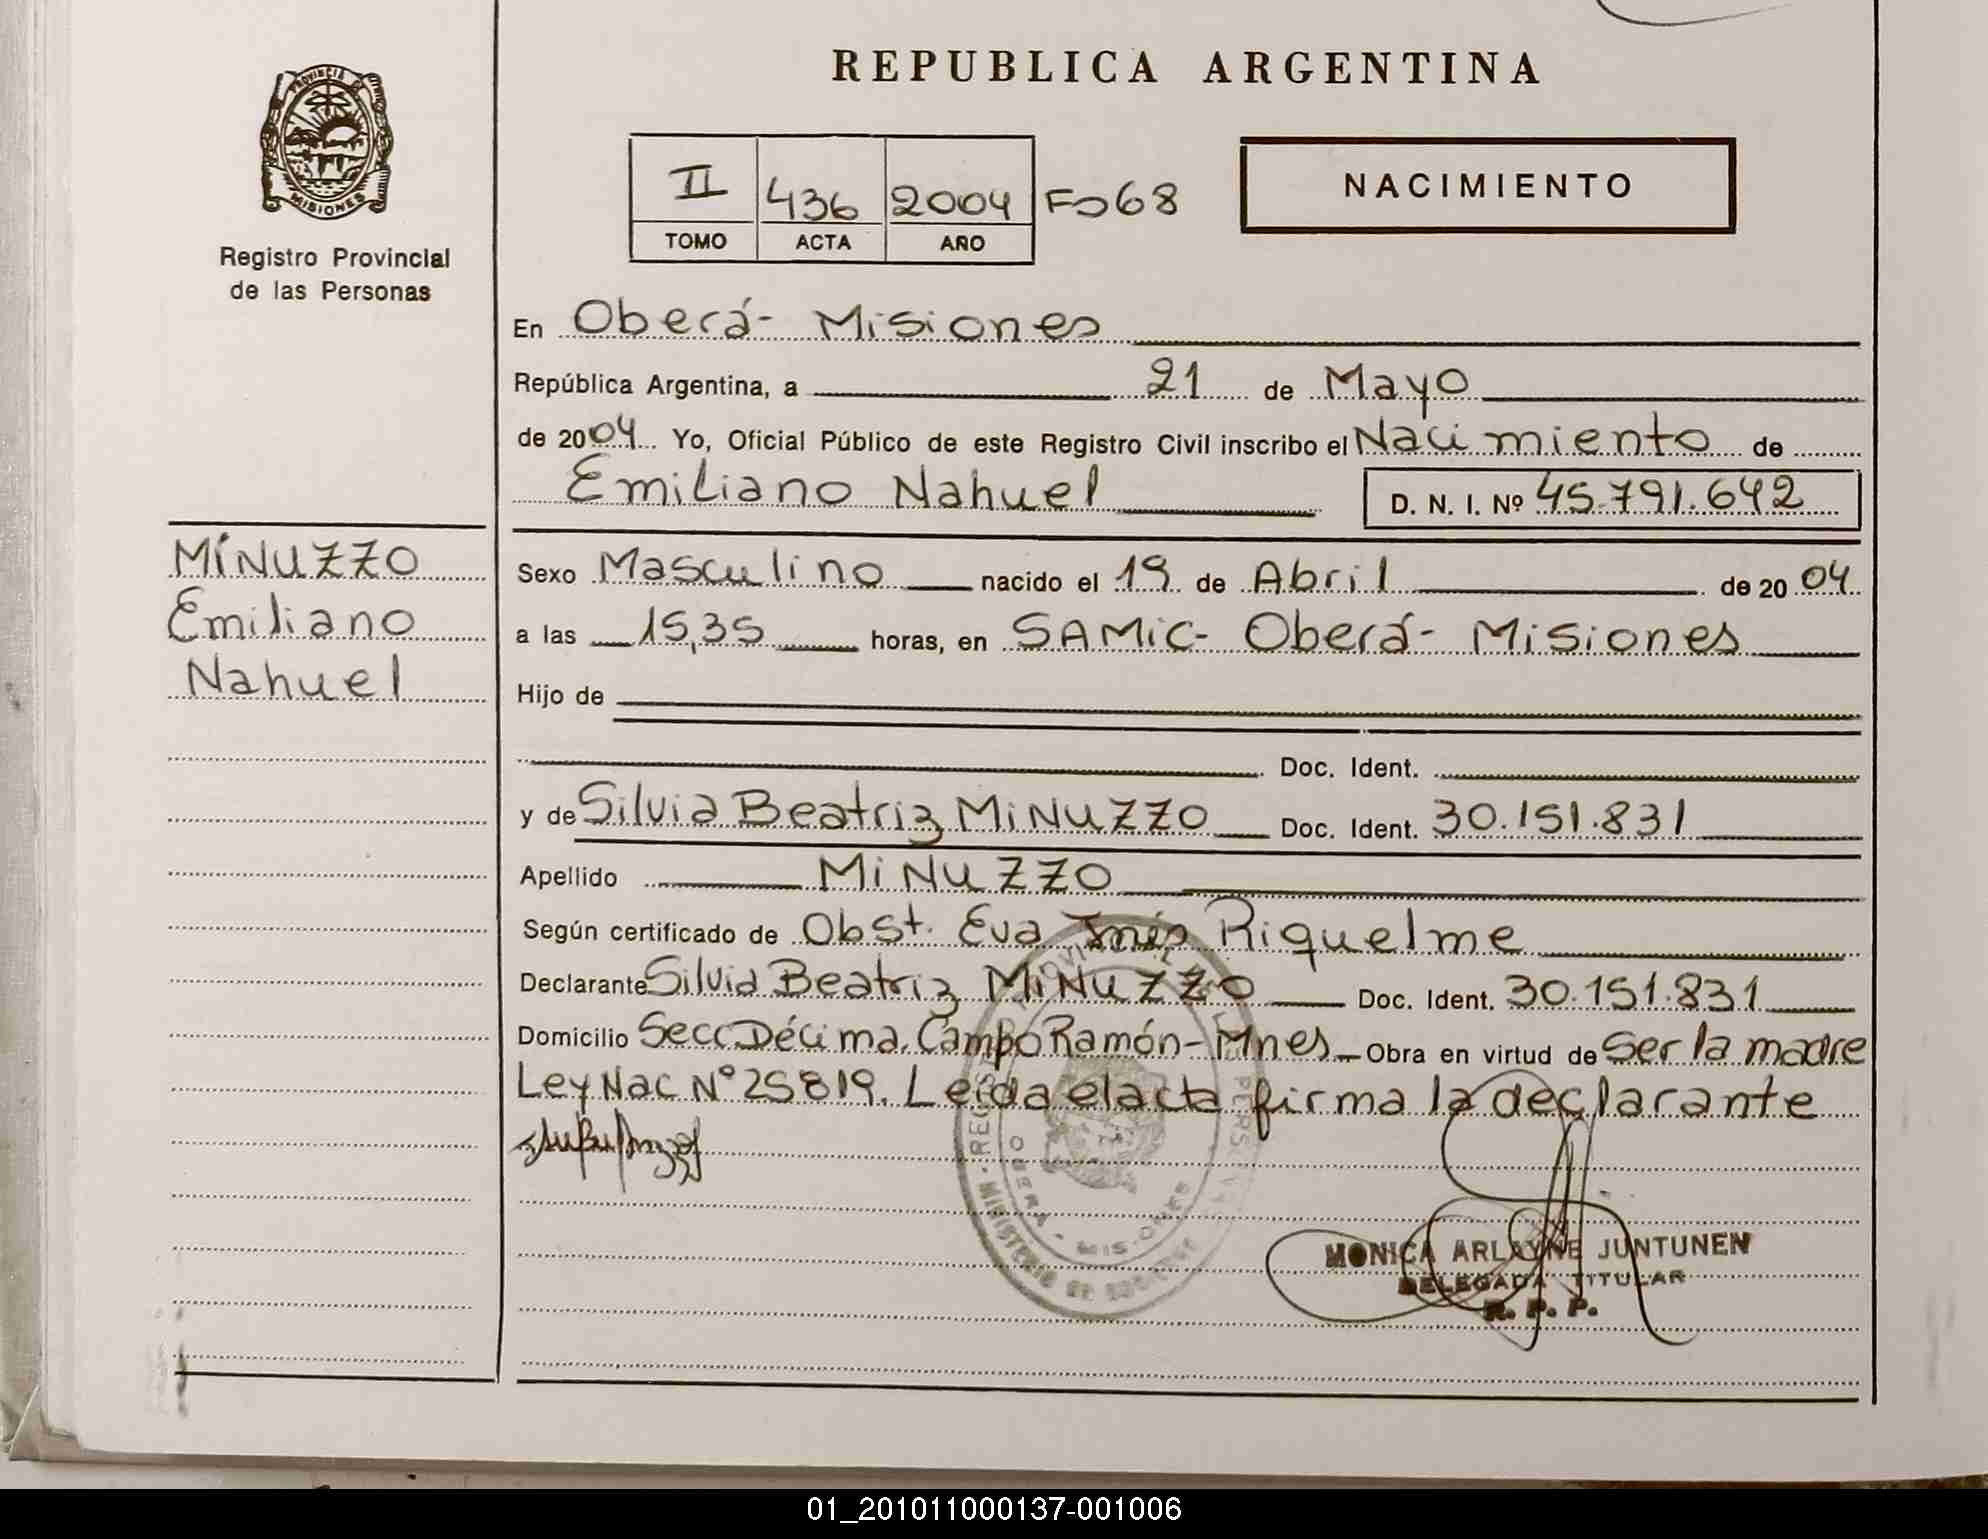 REPUBLICA ARGENTINA
PROVINCIA DE MISIONES
Registro Provincial
de las Personas
II 436 2004 Fo68
TOMO ACTA AÑO
NACIMIENTO
En Oberá- Misiones
República Argentina, a 21 de Mayo
de 2004 Yo, Oficial Público de este Registro Civil inscribo el Nacimiento de
Emiliano Nahuel D. N. I. Nº 45.791.642
MINUZZO
Emiliano
Nahuel
Sexo Masculino nacido el 19 de Abril de 2004
a las 15,35 horas, en SAMIC- Oberá- Misiones
Hijo de
Doc. Ident.
y de Silvia Beatriz MINUZZO Doc. Ident. 30.151.831
Apellido MINUZZO
Según certificado de Obst. Eva Inés Riquelme
Declarante Silvia Beatriz MINUZZO Doc. Ident. 30.151.831
Domicilio Secc. Décima. Campo Ramón- Mnes Obra en virtud de Ser la madre
Ley Nac Nº 25819. Leída el acta firma la declarante
OBERA - MISIONES
MONICA ARLAYNE JUNTUNEN
DELEGADA TITULAR
R. P. P.
01_201011000137-001006